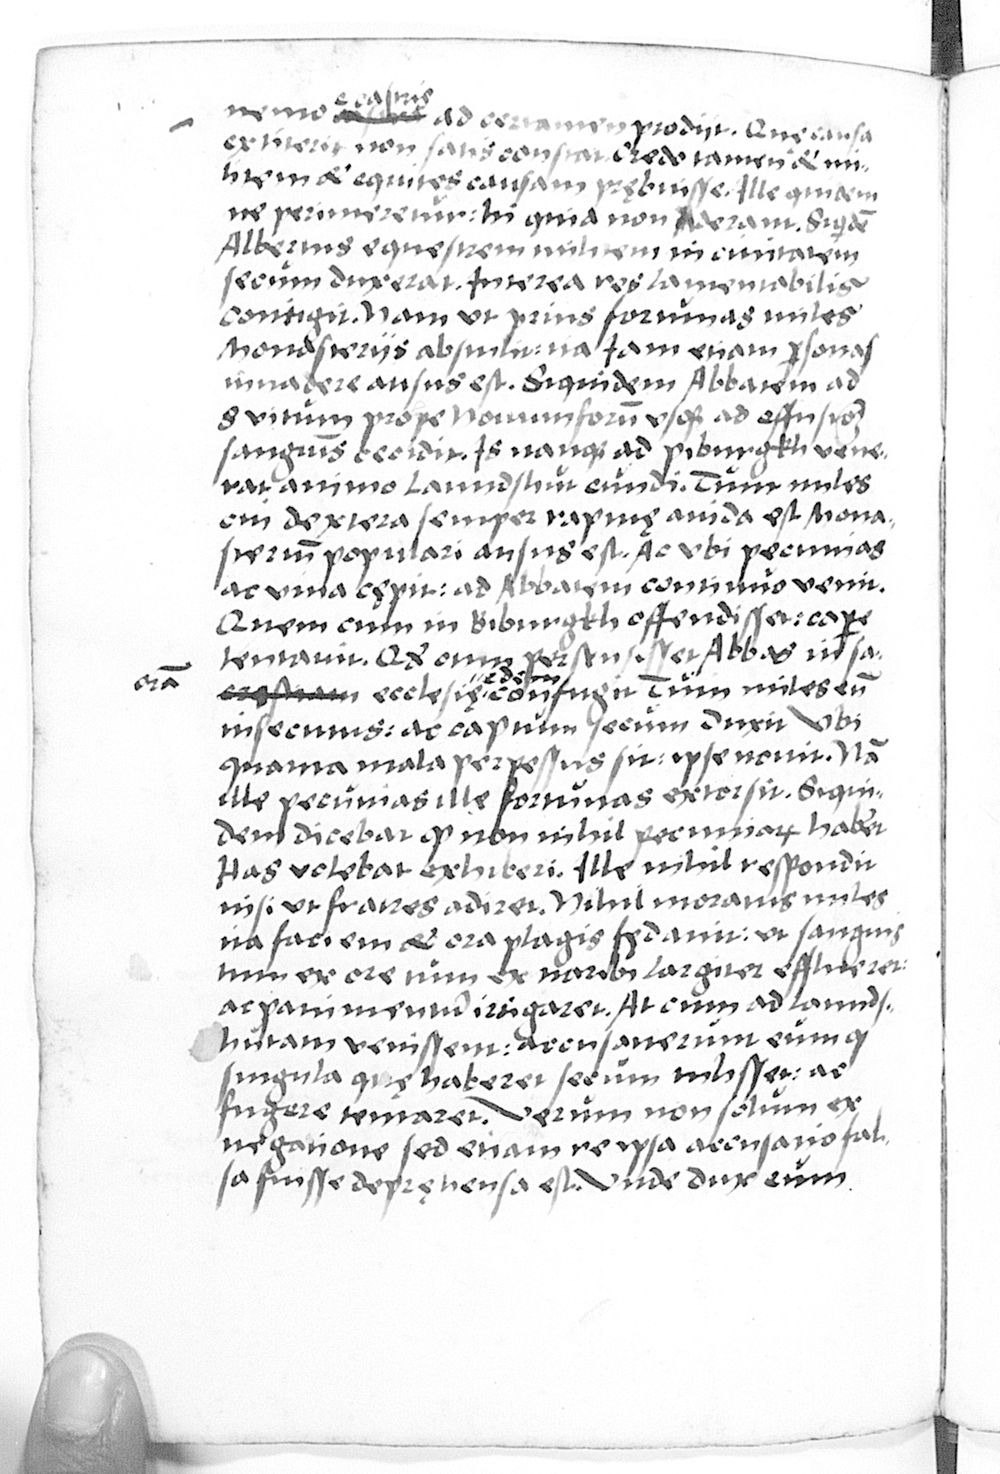 nemo e castris ad certamen prodijt. Que causa
extiterit non satis constat. Credo tamen & mi-
litem & equites causam prębuisse. Ille quidem
ne perimeretur: hi quia non aderant. Siqdē
Albertus equestrem militem in ciuitatem
secum duxerat. Interea res lamentabilis
contigit. Nam vt prius fortunas miles
Monasterijs abstulit: ita Jam etiam psonas
inuadere ausus est. Siquidem Abbatem ad
S vitum prope Nouumforū vsqȝ ad effusiōȝ
sanguīs cecidit. Is nanqȝ ad piburgkh vene-
rat animo Lanndshut eundi. Tum miles
cui dextera semper rapinę auida est Mona-
steriū populari ausus est. Ac vbi pecunias
ac vina cępit: ad Abbatem continuo venit.
Quem cum in Biburgkh offendisset: capere
tentauit. Qd cum persensisset Abbas in sa-
crā ecclesię edem confugit Tum miles eū
insecutus: ac captum secum duxit Vbi
quanta mala perpessus sit: ipse nouit. Nā
ille pecunias ille fortunas extorsit. Siqui-
dem dicebat qȝ non nihil pecuniarꝝ haber
Has volebat exhiberi. Ille nihil respondit
nisi vt fratres adiret. Nihil moratus miles
ita faciem & ora plagis fędauit: vt sanguis
tum ex ore tum ex naribȝ largiter efflueret:
ac pauimentū irrigaret. At cum ad Lannds-
hutam venissent: accusauerunt eum qȝ
singula quę haberet secum tulisset: ac
fugere temtaret. Verum non solum ex
negatione sed etiam re ipsa accusatio fal-
sa fuisse depręhensa est. Vnde dux eum